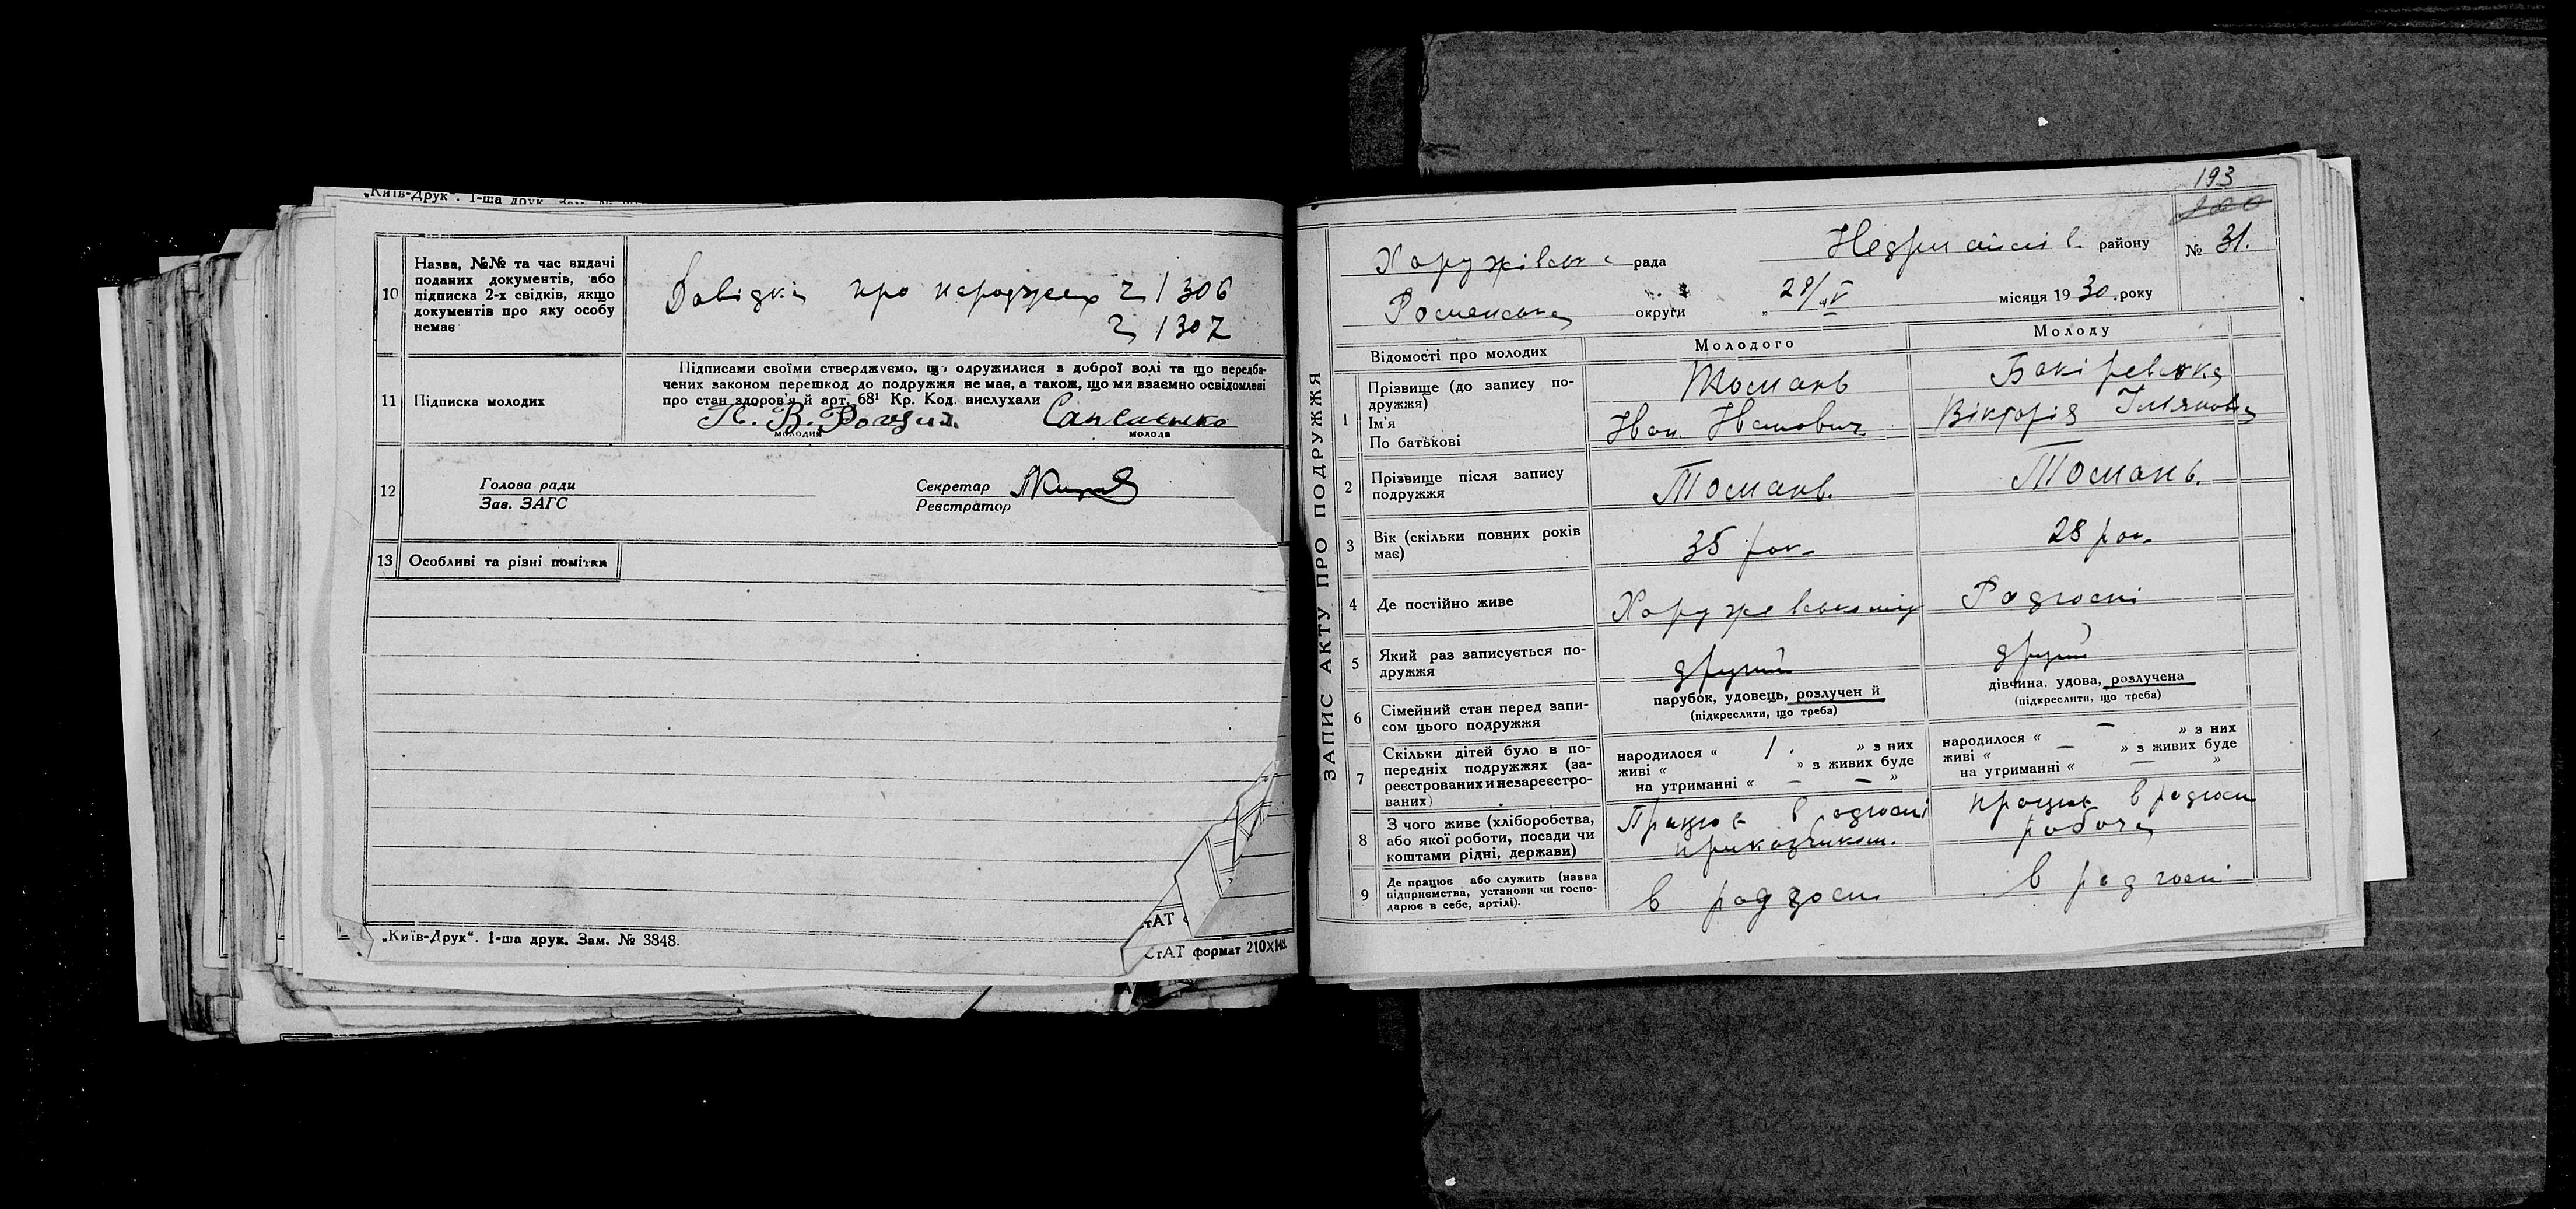 „Київ-Друк“. 1-ша друк. Зам. №
10
Назва, №№ та час видачі
поданих документів, або
підписка 2-х свідків, якщо
документів про яку особу
немає
Довідки про народжен ч 1306
ч 1307
11
Підписка молодих
Підписами своїми стверджуємо, що одружилися з доброї волі та що передба-
чених законом перешкод до подружжя не має, а також, що ми взаємно освідомлені
про стан здоров'я й арт. 68¹ Кр. Код. вислухали
молодий
молода
12
Голова ради
Зав. ЗАГС
Секретар
Реєстратор
13
Особливі та різні помітки
„Київ-Друк“. 1-ша друк. Зам. № 3848.
СтАТ формат 210×148
193
200
ЗАПИС АКТУ ПРО ПОДРУЖЖЯ
Хоружівська рада
Недригайлів району
№ 31.
Роменська округи
„ 29/IV місяця 1930. року
Відомості про молодих
Молодого
Молоду
1
Прізвище (до запису по-
дружжя)
Ім'я
По батькові
Томань
Іван Іванович
Вікторія
2
Прізвище після запису
подружжя
Томань.
Томань.
3
Вік (скільки повних років
має)
35 рок
28 рок
4
Де постійно живе
Радгоспі
5
Який раз записується по-
дружжя
другий
другий
6
Сімейний стан перед запи-
сом цього подружжя
парубок, удовець, розлучен й
(підкреслити, що треба)
дівчина, удова, розлучена
(підкреслити, що треба)
7
Скільки дітей було в по-
передніх подружжях (за-
реєстрованих и незареєстро-
ваних)
народилося « 1 . » з них
живі « » з живих буде
на утриманні « — — »
народилося « — » з них
живі « — » з живих буде
на утриманні « — »
8
З чого живе (хліборобства,
або якої роботи, посади чи
коштами рідні, держави)
Працює в радгоспі
приказчиком.
працює в радгоспі
робоча
9
Де працює або служить (назва
підприємства, установи чи госпо-
дарює в себе, артілі).
в радгоспі
в радгоспі